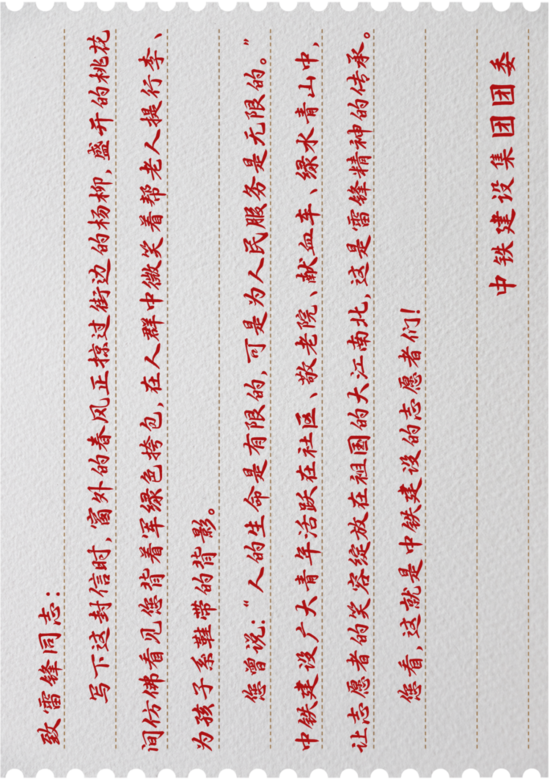 致雷锋同志：
写下这封信时，窗外的春风正掠过街边的杨柳，盛开的桃花
间仿佛看见您背着军绿色挎包，在人群中微笑着帮老人提行李、
为孩子系鞋带的背影。
您曾说：“人的生命是有限的，可是为人民服务是无限的。”
中铁建设广大青年活跃在社区、敬老院、献血车、绿水青山中，
让志愿者的笑容绽放在祖国的大江南北，这是雷锋精神的传承。
您看，这就是中铁建设的志愿者们！
中铁建设集团团委